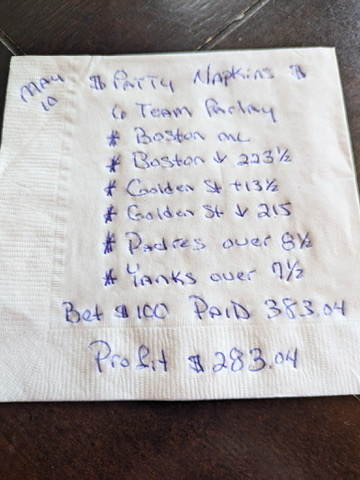 May
10
$ Patty Napkins $
6 Team Parlay
# Boston ML
# Boston ↓ 223½
# Golden St +13½
# Golden St ↓ 215
# Padres over 8½
# Yanks over 7½
Bet $100 PAID 383.04
Profit $283.04